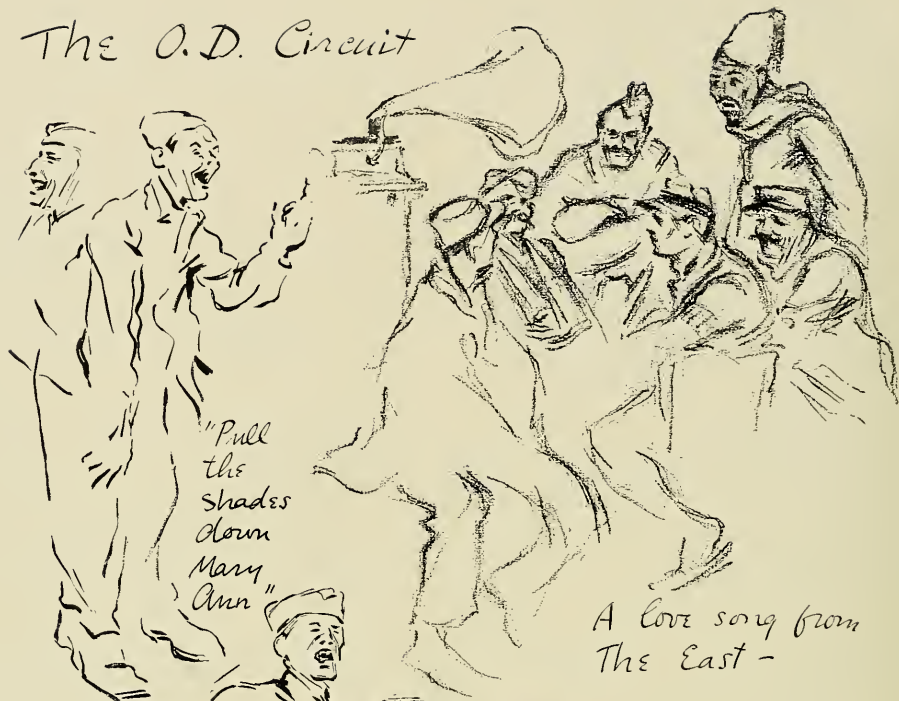 The O.D. Circuit
"Pull
the
shades
down
Mary
Ann"
A love song from
The East -